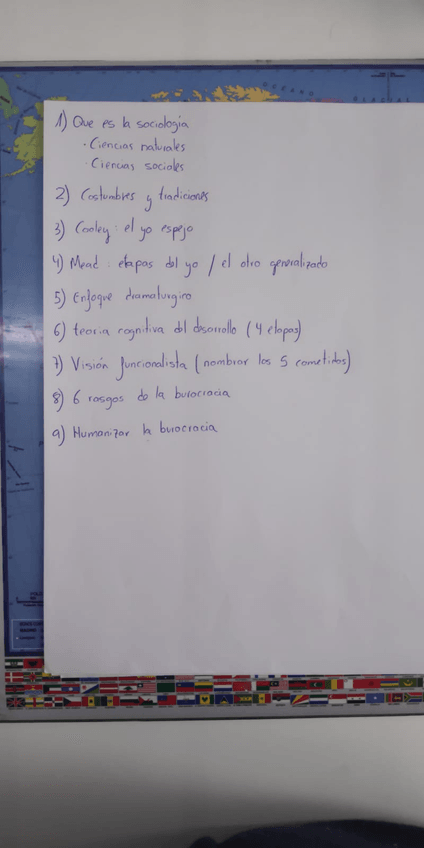 1) Que es la sociología
· Ciencias naturales
· Ciencias sociales
2) Costumbres y tradiciones
3) Cooley: el yo espejo
4) Mead: etapas del yo / el otro generalizado
5) Enfoque dramaturgico
6) teoria cognitiva del desarrollo (4 etapas)
7) Visión funcionalista (nombrar los 5 cometidos)
8) 6 rasgos de la burocracia
9) Humanizar la burocracia